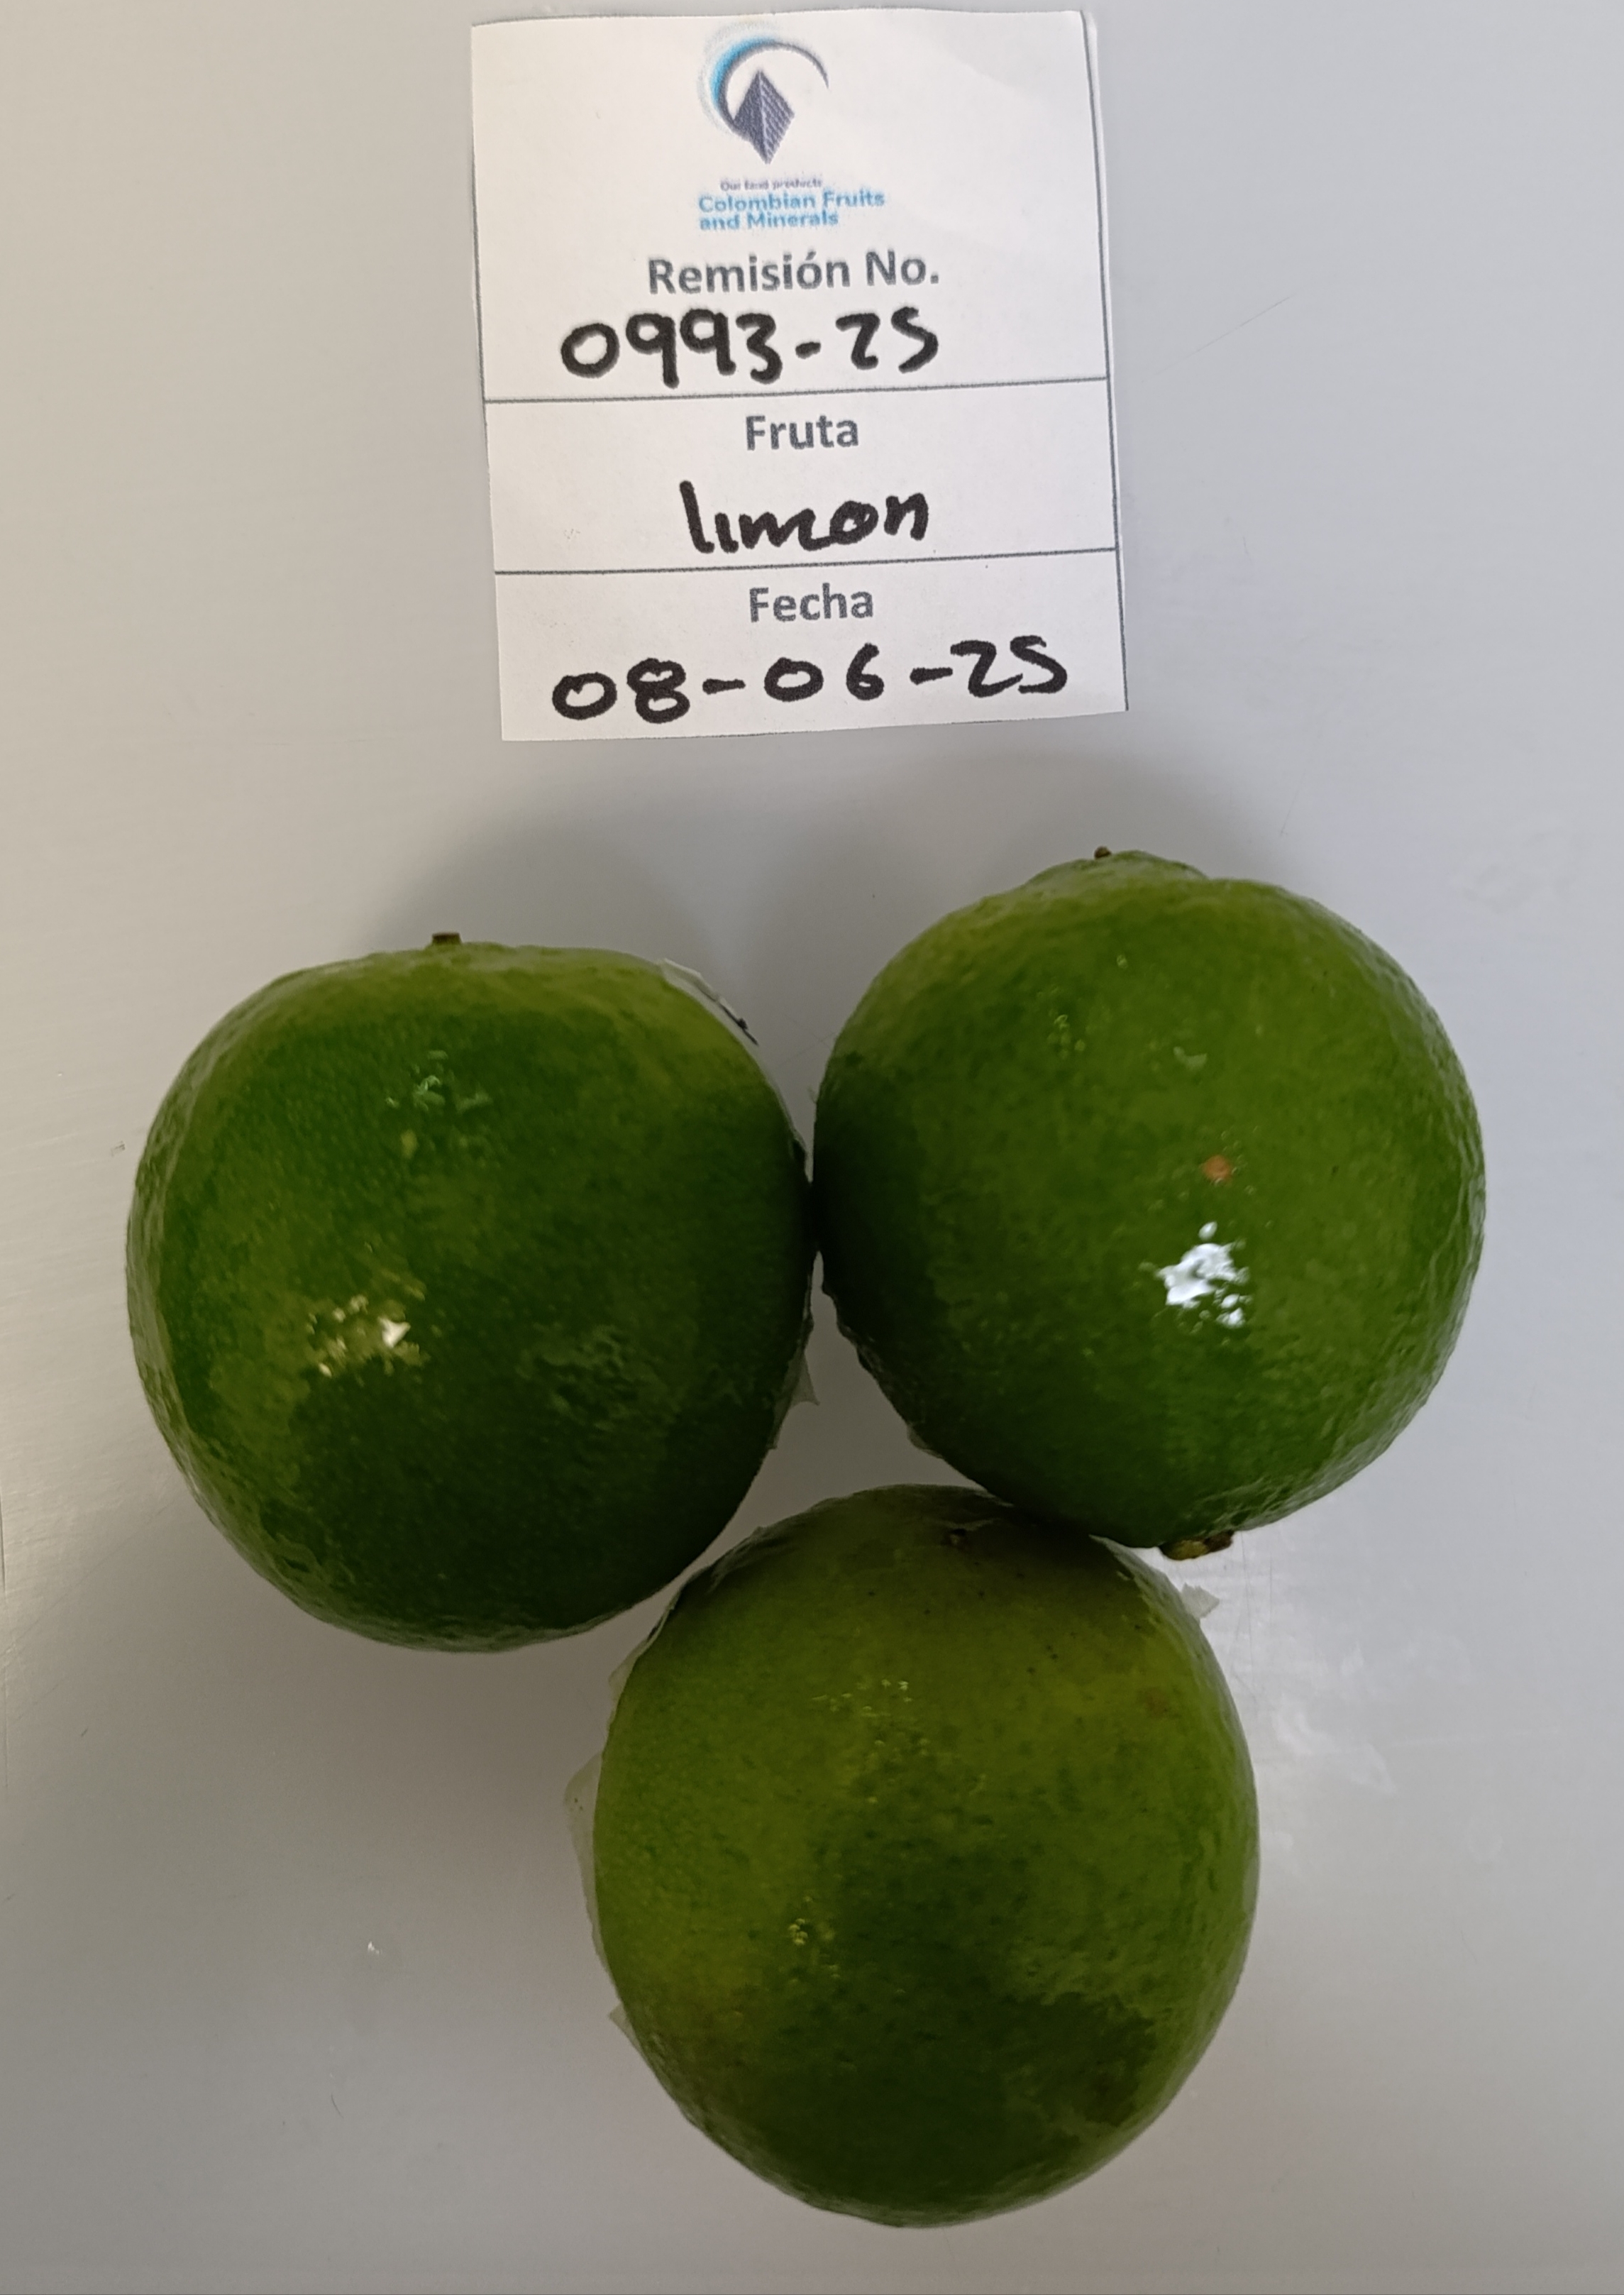 Our land products
Colombian Fruits
and Minerals
Remisión No.
0993-25
Fruta
limon
Fecha
08-06-25